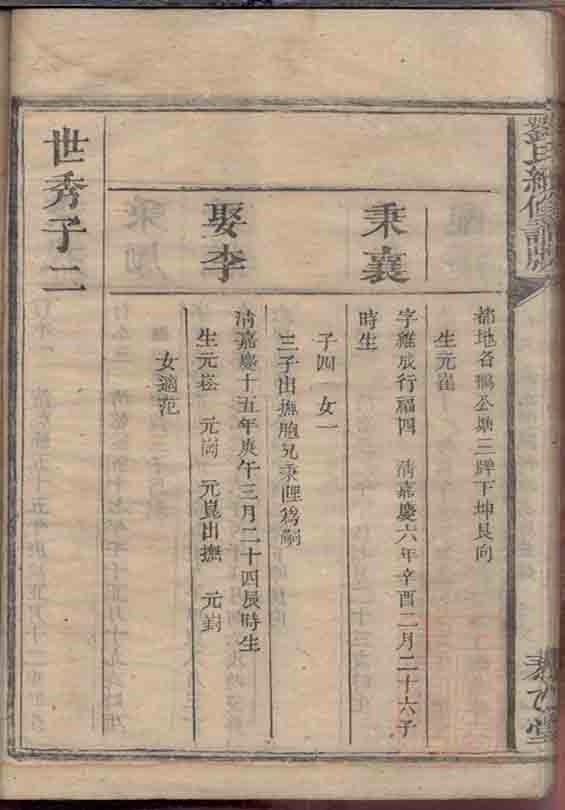 劉氏續修譜牒
茔地名鵝公塘三牌下坤艮向
生元崔
秉襄
字維成行福四 清嘉慶六年辛酉二月二十六子
時生
子四 女一
三子出撫胞兄秉陞為嗣
娶李
清嘉慶十五年庚午三月二十四辰時生
生元崧 元崗 元崑出撫 元崶
女適范
世秀子二